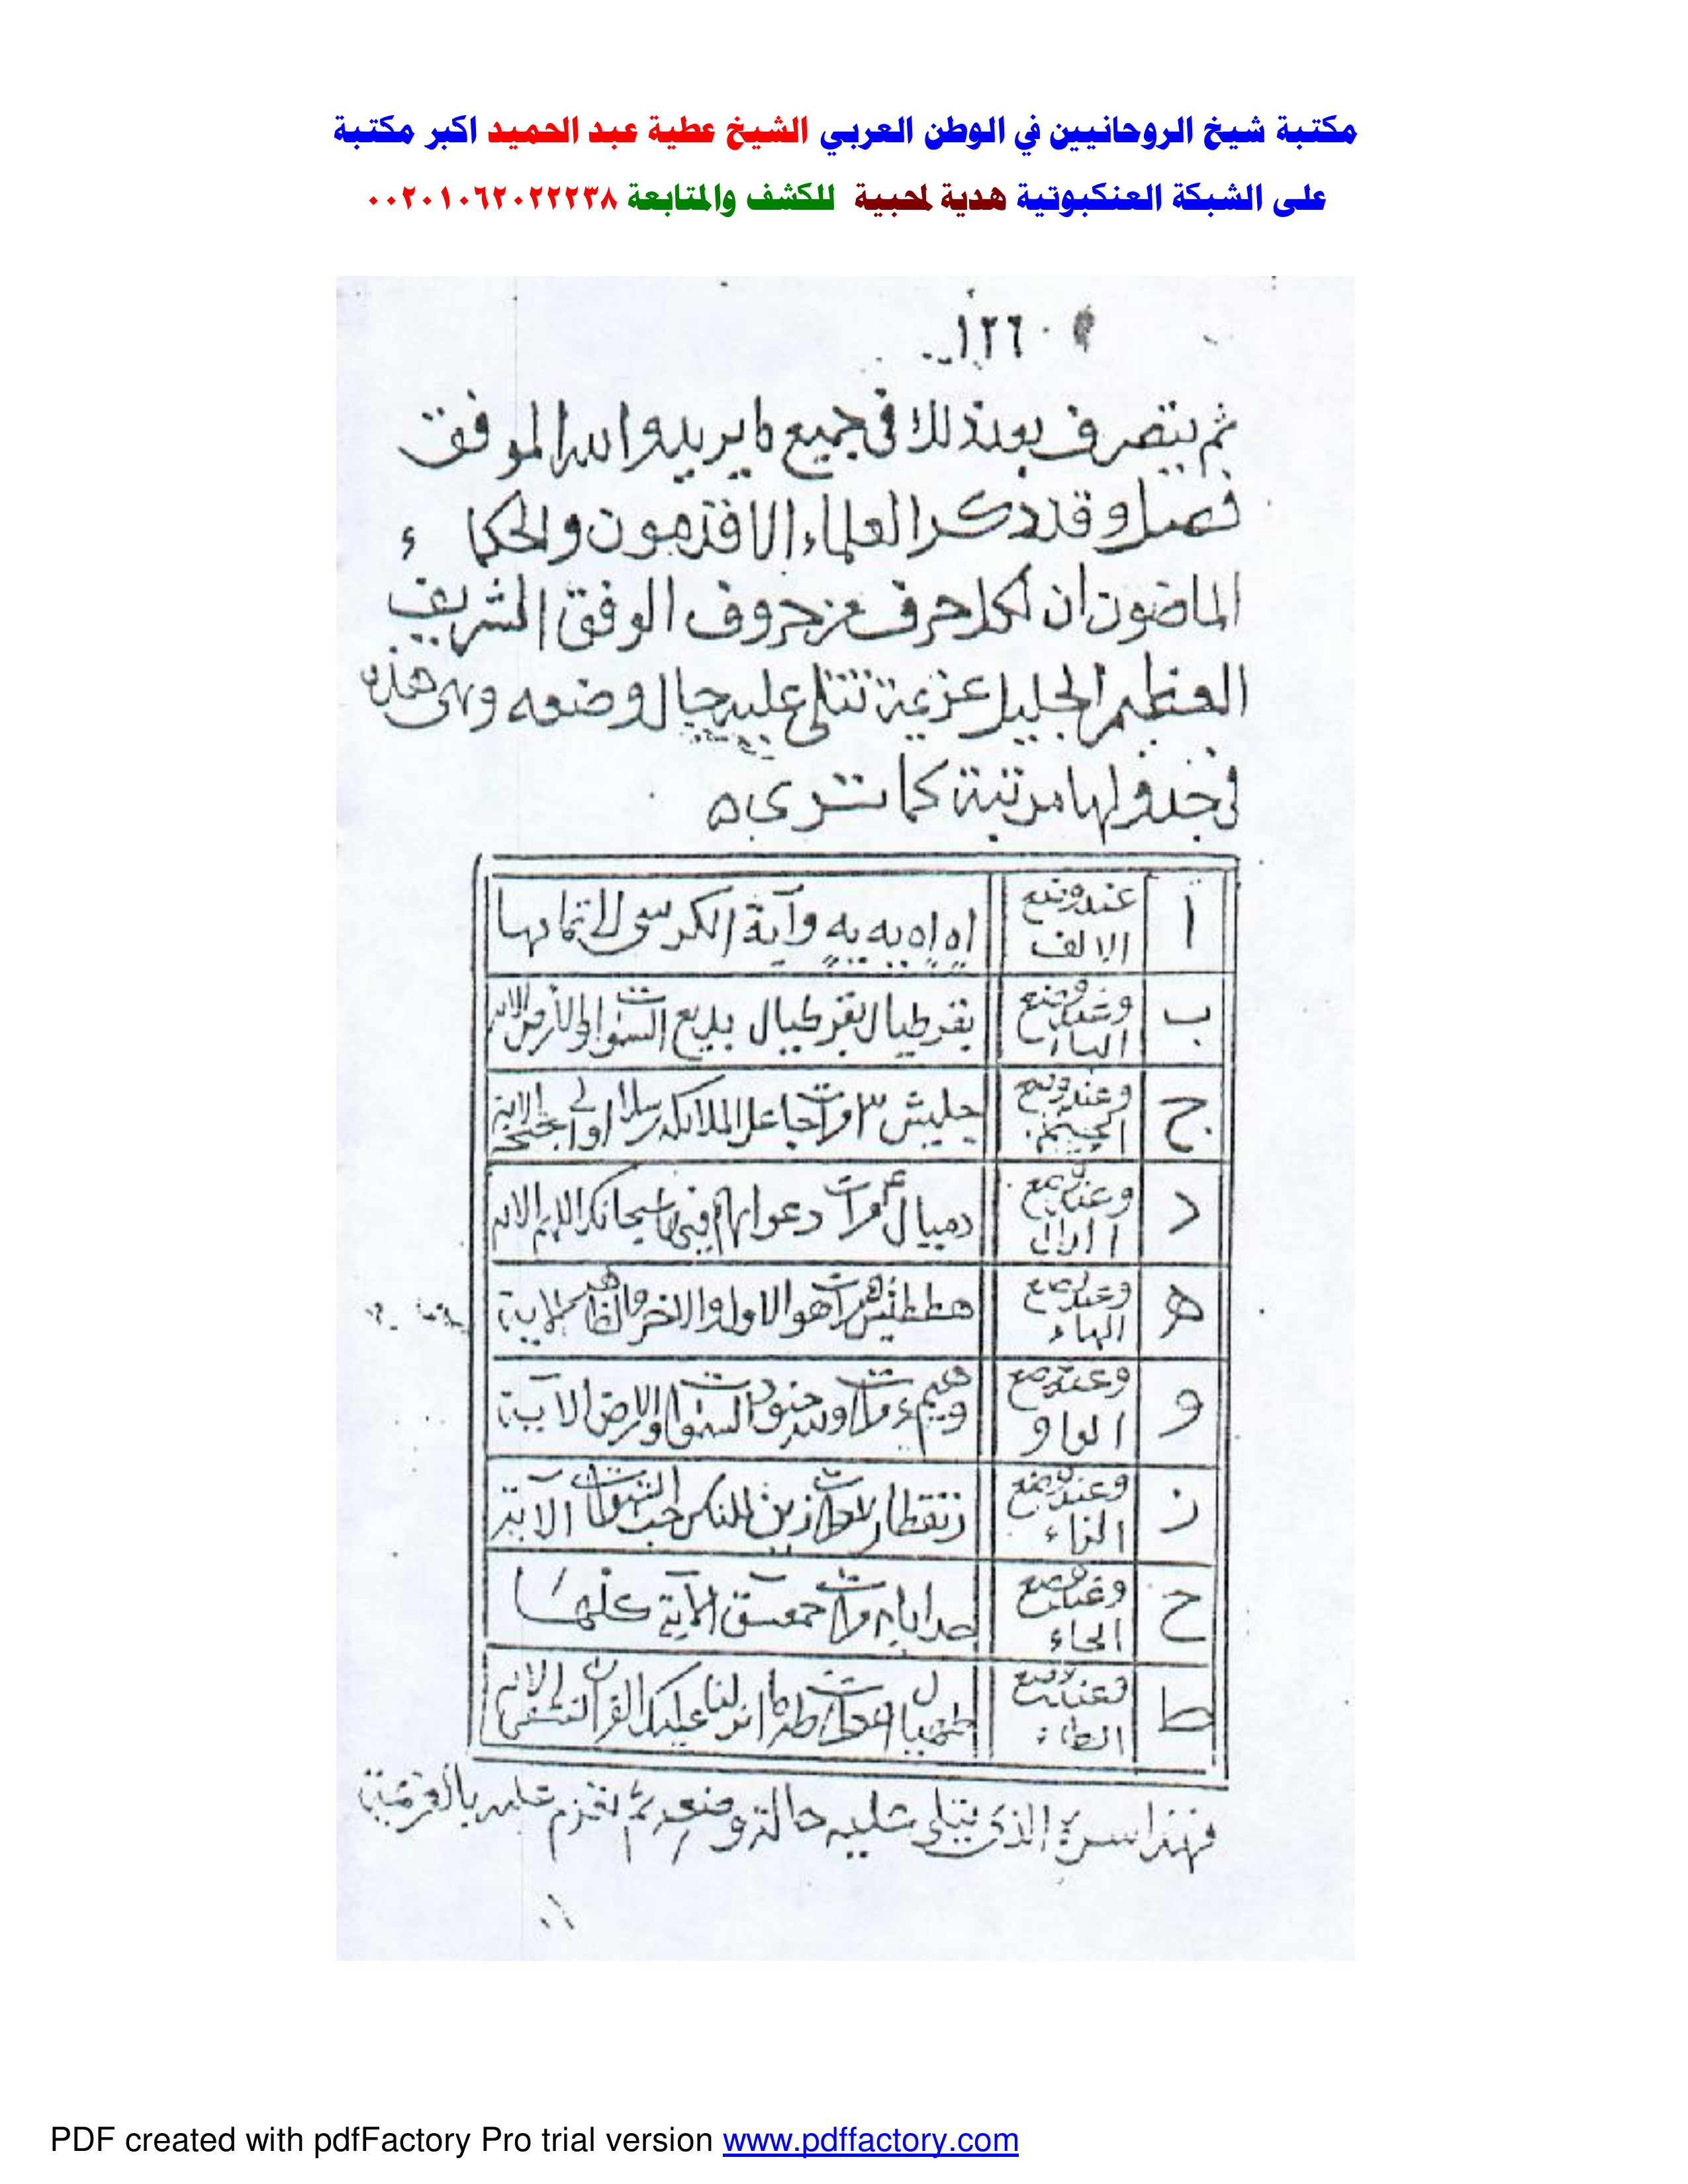 مكتبة شيخ الروحانيين في الوطن العربي الشيخ عطية عبد الحميد اكبر مكتبة
على الشبكة العنكبوتية هدية لمحبية للكشف والمتابعة ٠٠٢٠١٠٦٢٠٢٢٢٣٨
١٢٦
ثم يتصرف بعد ذلك في جميع ما يريد والله الموفق
فصل وقد ذكر العلماء الاقدمون والحكماء
الماضون ان لكل حرف من حروف الوفق الشريف
العظيم الجليل عزيمة تتلى عليه حال وضعه وهى هذه
في جدولها مرتبة كما ترى
ا عند وضع الالف اه اه يه يه وآية الكرسى لاتمامها
ب وعند وضع الباء بقرطيال بقرطيال بديع السموات والأرض الاية
ج وعند وضع الجيم جليش ٣ مرات جاعل الملائكة رسلا اولى اجنحة الاية
د وعند وضع الدال دميال ٤ مرات دعواهم فيها سبحانك اللهم الاية
ه وعند وضع الهاء مرات هو الاول والاخر والظاهر الاية
و وعند وضع الواو مرات ولله جنود السموات والارض الآية
ز وعند وضع الزاء مرات زين للناس حب الشهوات الآية
ح وعند وضع الحاء مرات حمعسق الآية كلها
ط وعند وضع الطاء مرات طه ما انزلنا عليك القرآن لتشقى الاية
فهذا سره الذى يتلى عليه حالة وضعه ثم تعزم عليه بالعزيمة
PDF created with pdfFactory Pro trial version www.pdffactory.com